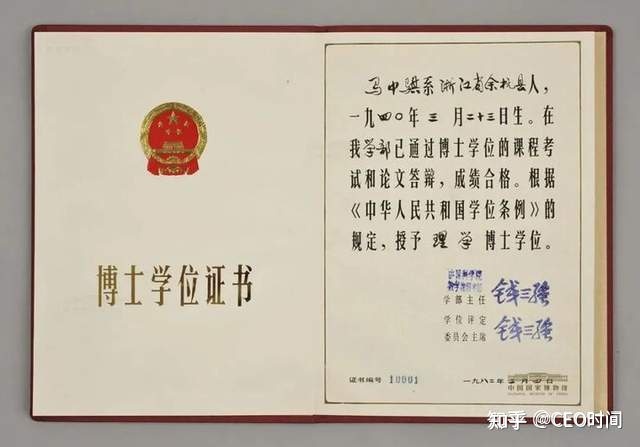 博士学位证书
马中骐系浙江省余杭县人，
一九四〇年三月二十三日生。在
我学部已通过博士学位的课程考
试和论文答辩，成绩合格。根据
《中华人民共和国学位条例》的
规定，授予理学博士学位。
中国科学院
数学物理学部
学部主任 钱三强
学位评定
委员会主席 钱三强
证书编号 10001
一九八二年三月四日
中国国家博物馆
NATIONAL MUSEUM OF CHINA
知乎 @CEO时间